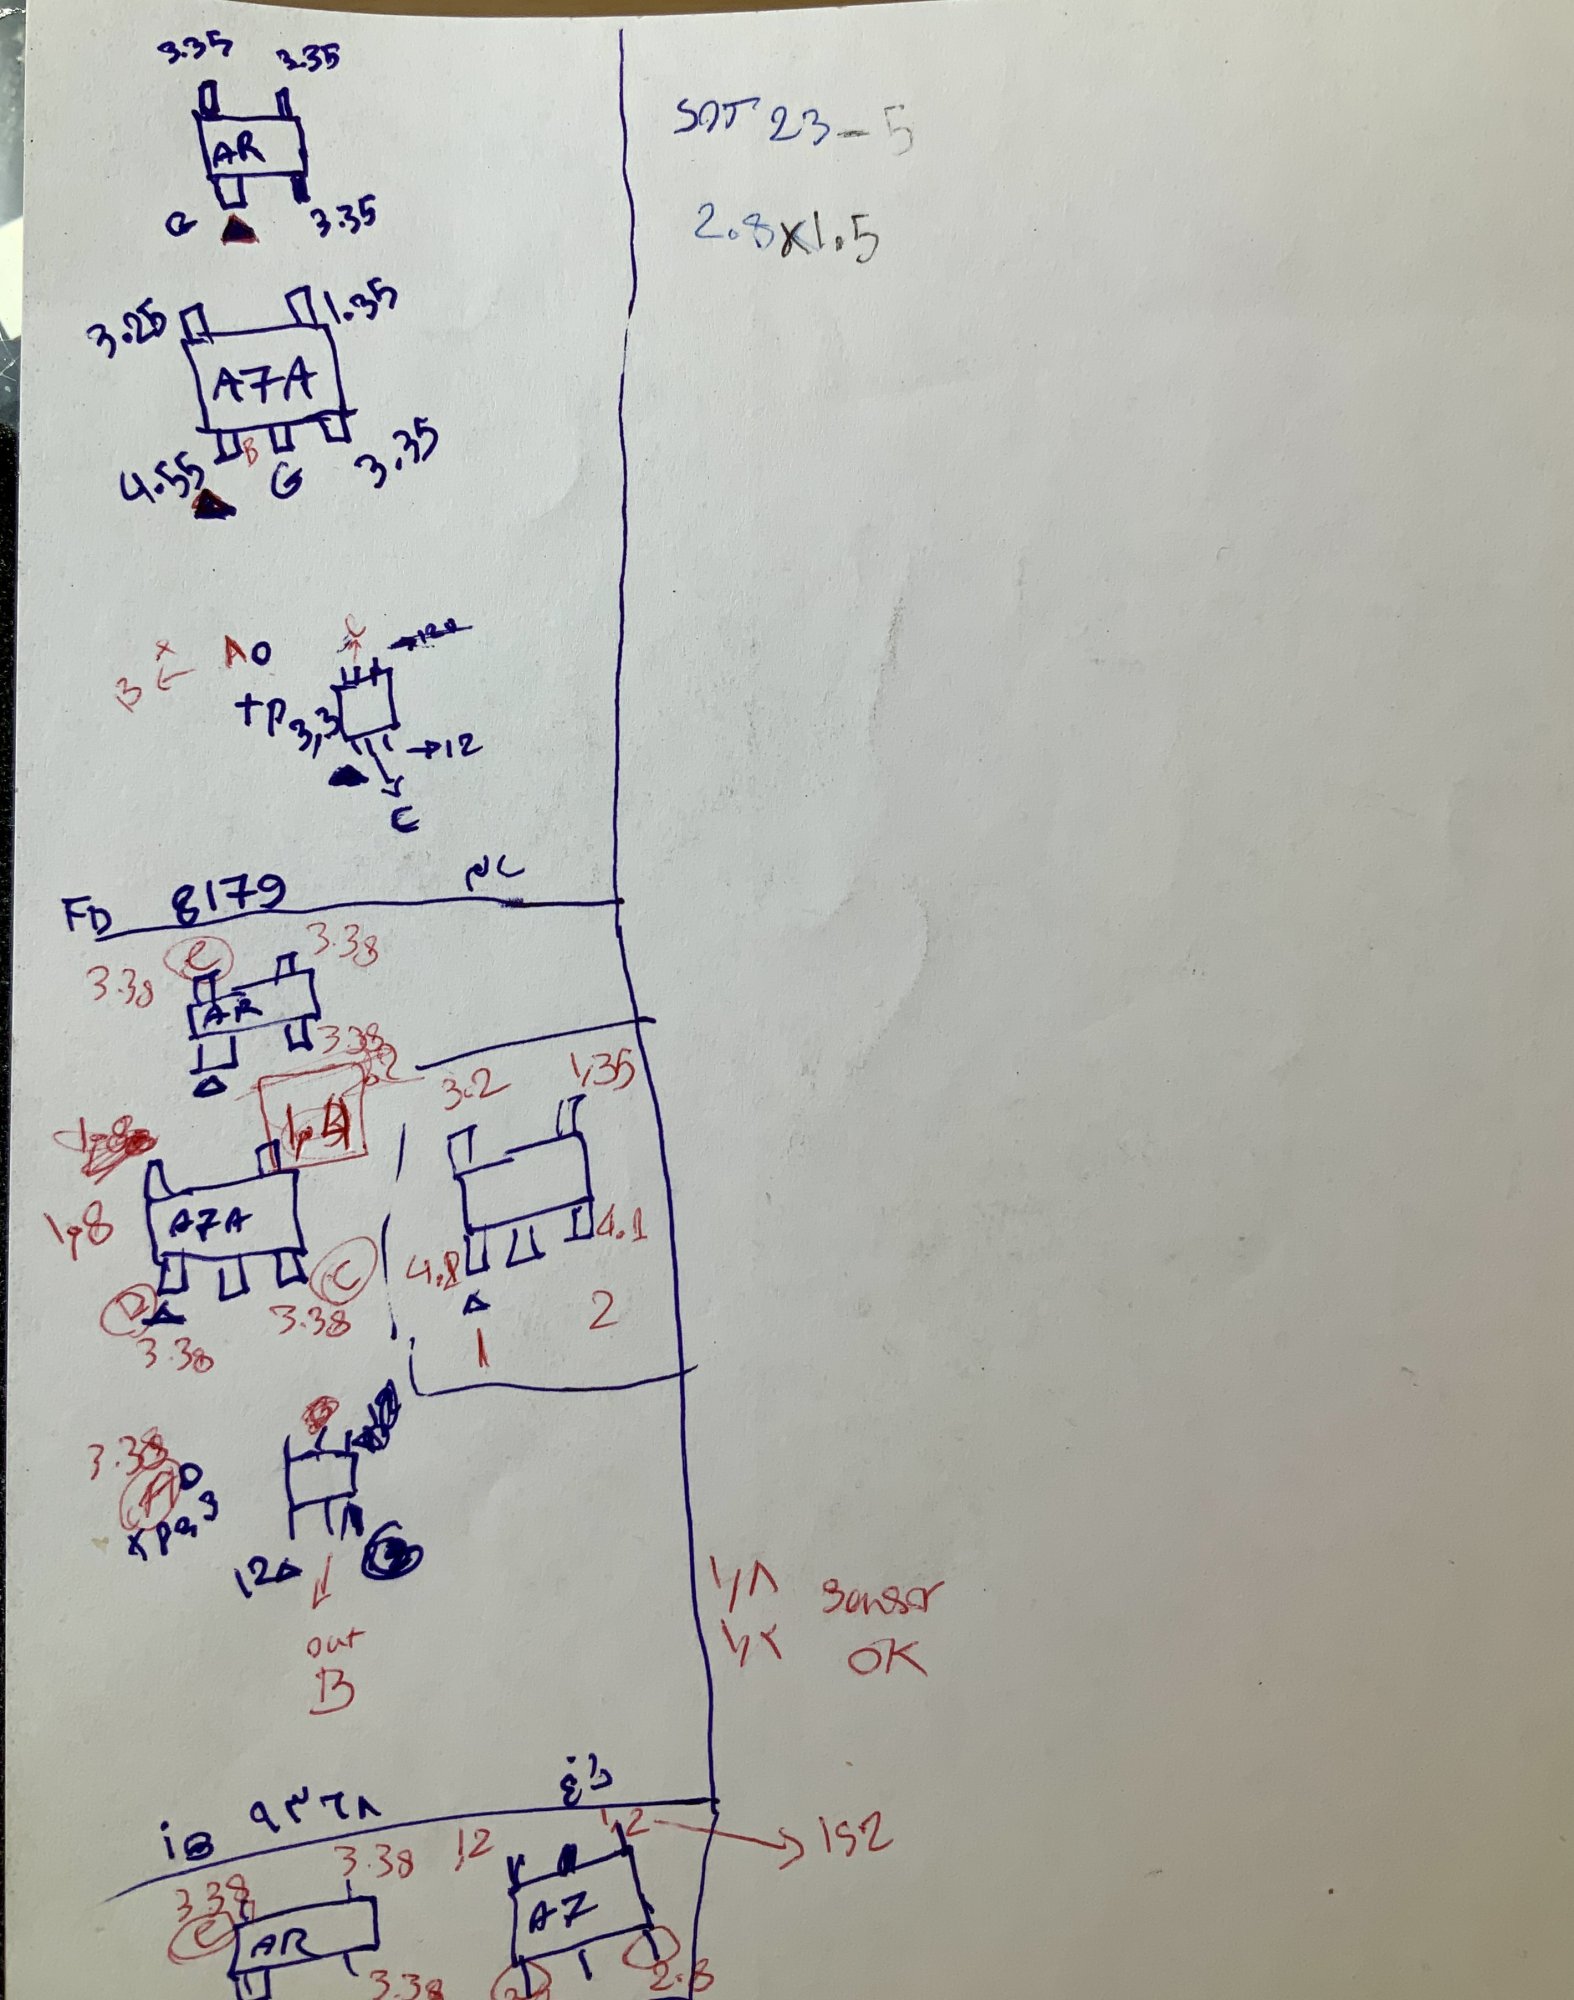 3.35 3.35
AR
G 3.35
SOT 23-5
2.8x1.5
3.25 1.35
A7A
4.55 B G 3.35
B AO C
+P3,3
→12
C
FD 8179
C 3.38
3.38
AR
3.38
1,4
3.2 1,35
1,8
A7A
4.8 4.1
C
3.38 3.38
1 2
3.38
AO
12
out
B
1,8 sensor
OK
iB ۹۳۶۸
1,2 → 1s2
1,2
3.38 3.38
C AR A7
3.38 2.8